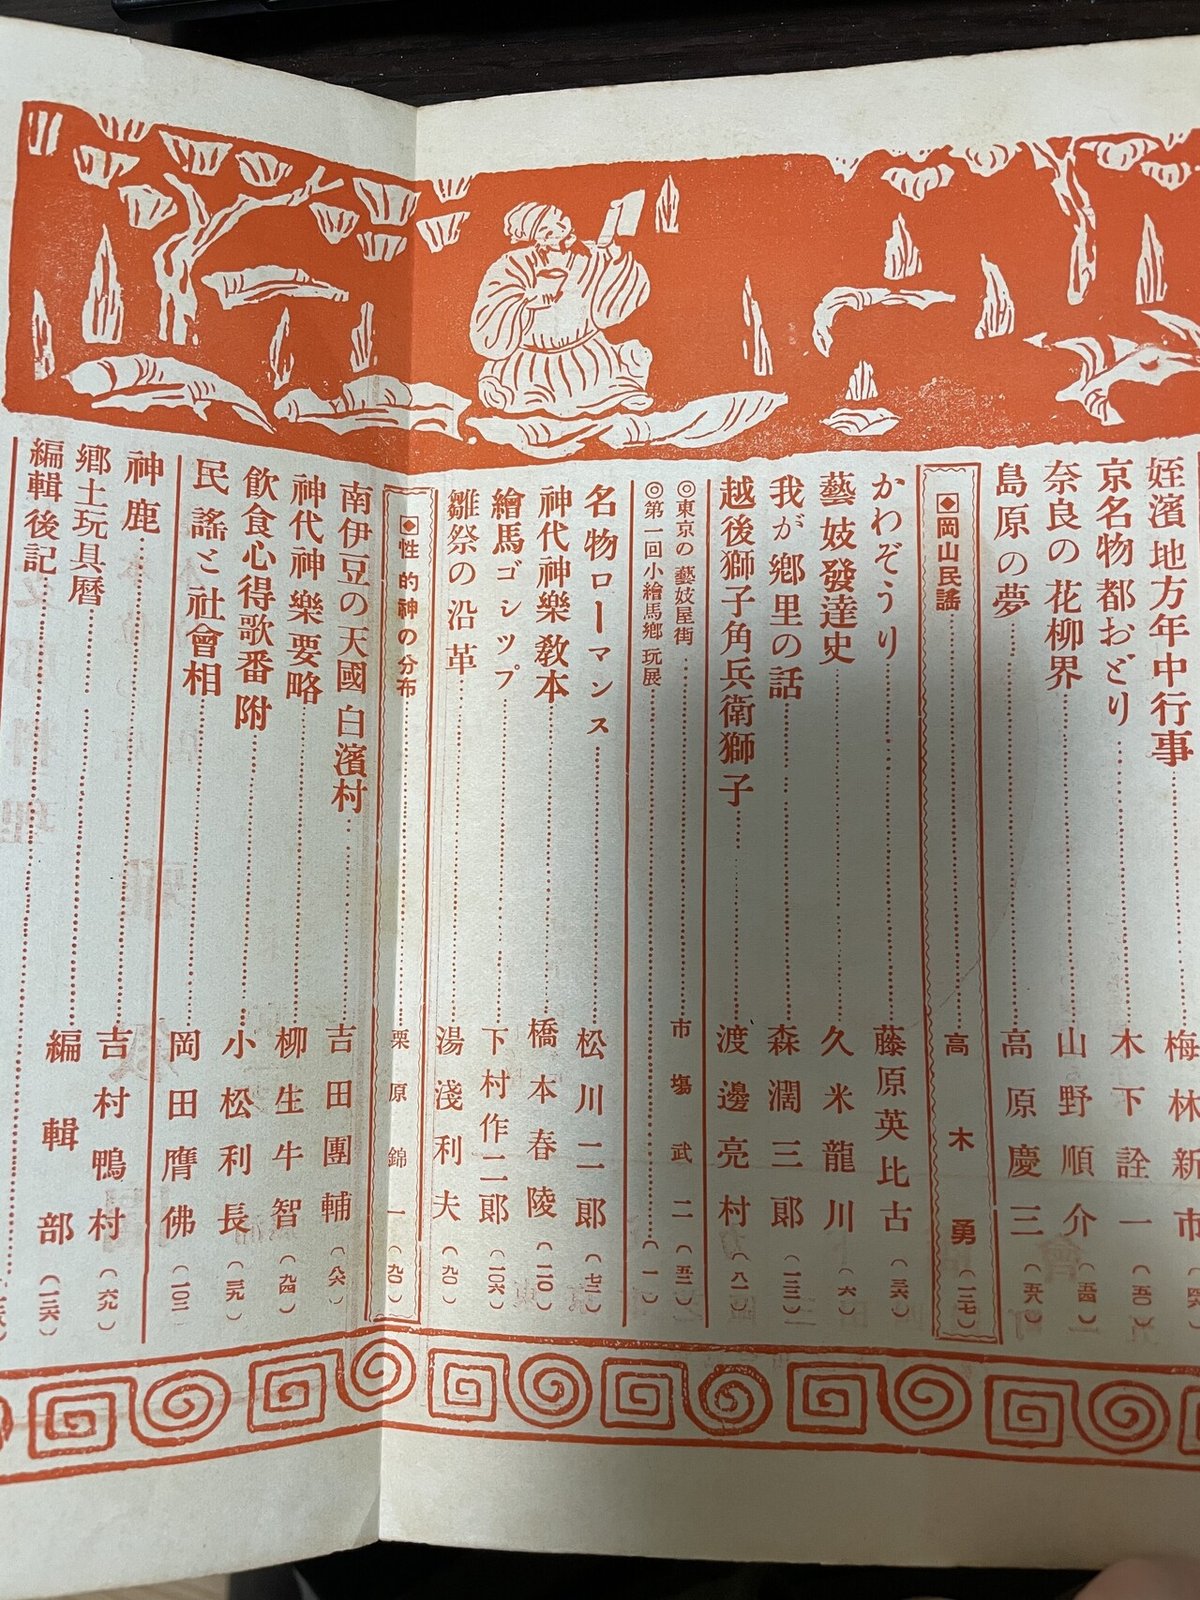 姪濱地方年中行事 梅林新市
京名物都おどり 木下詮一(五〇)
奈良の花柳界 山野順介(五四)
島原の夢 高原慶三(五八)
◆岡山民謠 高木勇(一二七)
かわぞうり 藤原英比古(三六)
藝妓發達史 久米龍川(六)
我が鄕里の話 森濶三郞(一三三)
越後獅子角兵衛獅子 渡邊亮村(八一)
◎東京の藝妓屋街 市塲武二(五二)
◎第一回小繪馬鄕玩展(一)
名物ローマンス 松川二郞(七二)
神代神樂敎本 橋本春陵(一一〇)
繪馬ゴシツプ 下村作二郞(一〇六)
雛祭の沿革 湯淺利夫(九〇)
◆性的神の分布 栗原錦一(九〇)
南伊豆の天國白濱村 吉田團輔(八六)
神代神樂要略 柳生牛智(九四)
飮食心得歌番附 小松利長(三九)
民謠と社會相 岡田膺佛(一〇三)
神鹿 吉村鴨村(六九)
鄕土玩具曆 編輯部(一二六)
編輯後記